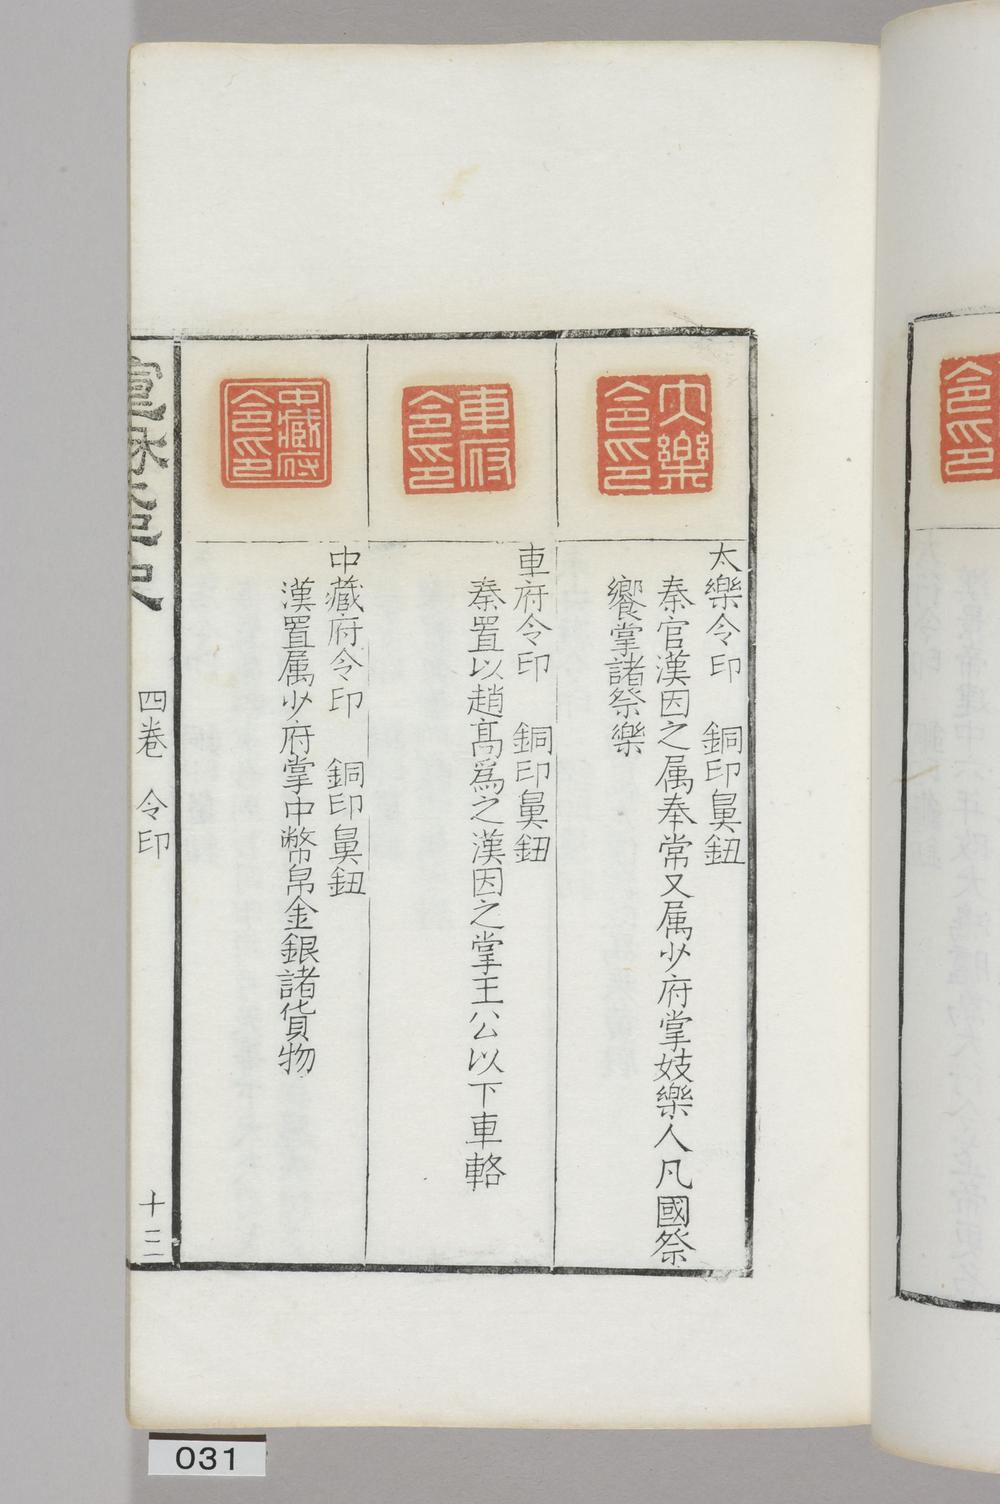 大樂令印
太樂令印　銅印鼻鈕
秦官漢因之属奉常又属少府掌妓樂人凡國祭
饗掌諸祭樂
車府令印
車府令印　銅印鼻鈕
秦置以趙髙爲之漢因之掌王公以下車輅
中藏府令印
中藏府令印　銅印鼻鈕
漢置属少府掌中幣帛金銀諸貨物
四卷　令印
十三
031